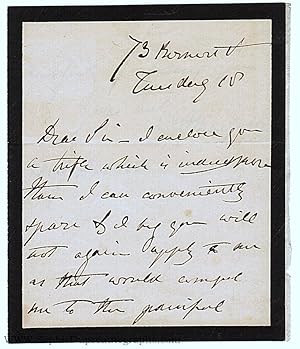 73 Berners St
Tuesday 18
Dear Sir — I enclose you
a trifle which is indeed more
than I can conveniently
spare & I beg you will
not again apply to me
as that would compel
me to the painful